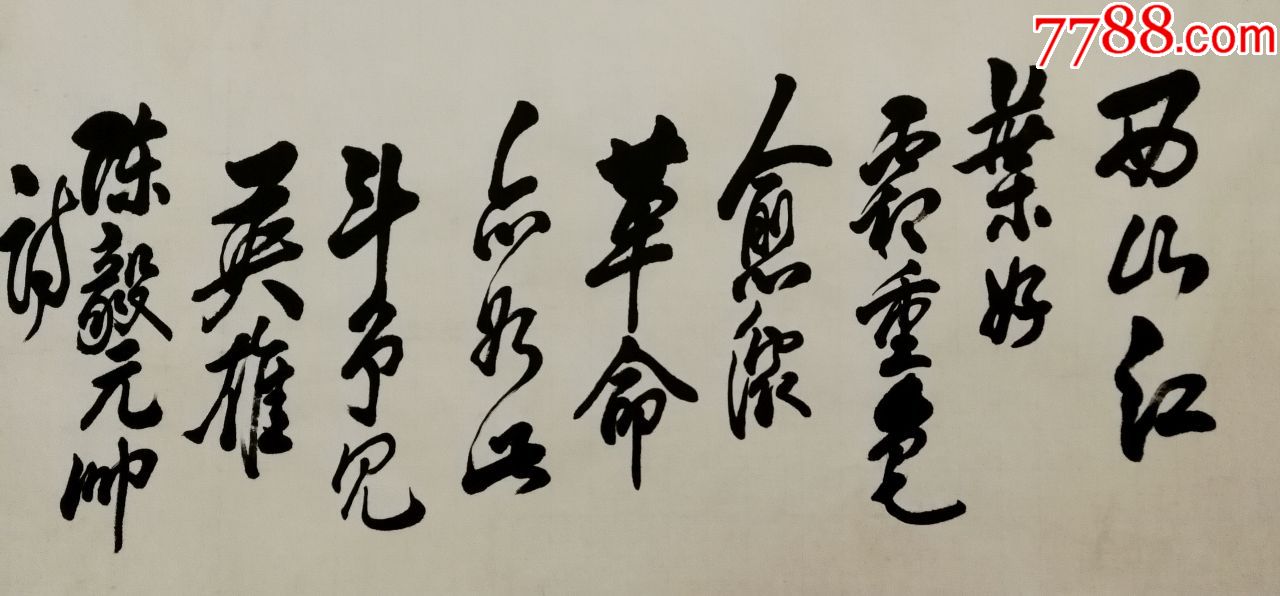 7788.com
西山红
葉好
霜重色
愈濃
革命
亦如此
斗争见
英雄
陈毅元帅
诗